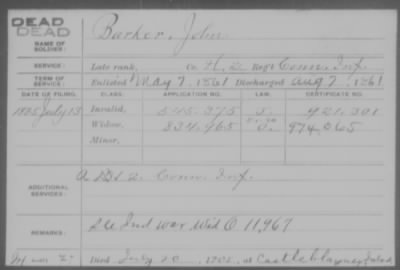 DEAD
DEAD
NAME OF SOLDIER: Barker, John
SERVICE: Late rank, Co. H, 2 Reg't Conn. Inf.
TERM OF SERVICE: Enlisted May 7, 1861 Discharged Aug 7, 1861
DATE OF FILING. CLASS. APPLICATION NO. LAW. CERTIFICATE NO.
1885 July 13 Invalid, 545.375 921.301
Widow, 834.465 974.065
Minor,
ADDITIONAL SERVICES: 12 Conn. Inf.
REMARKS: See Ind war Wid O 11,967
Died July 20 at Castleblayney Ireland